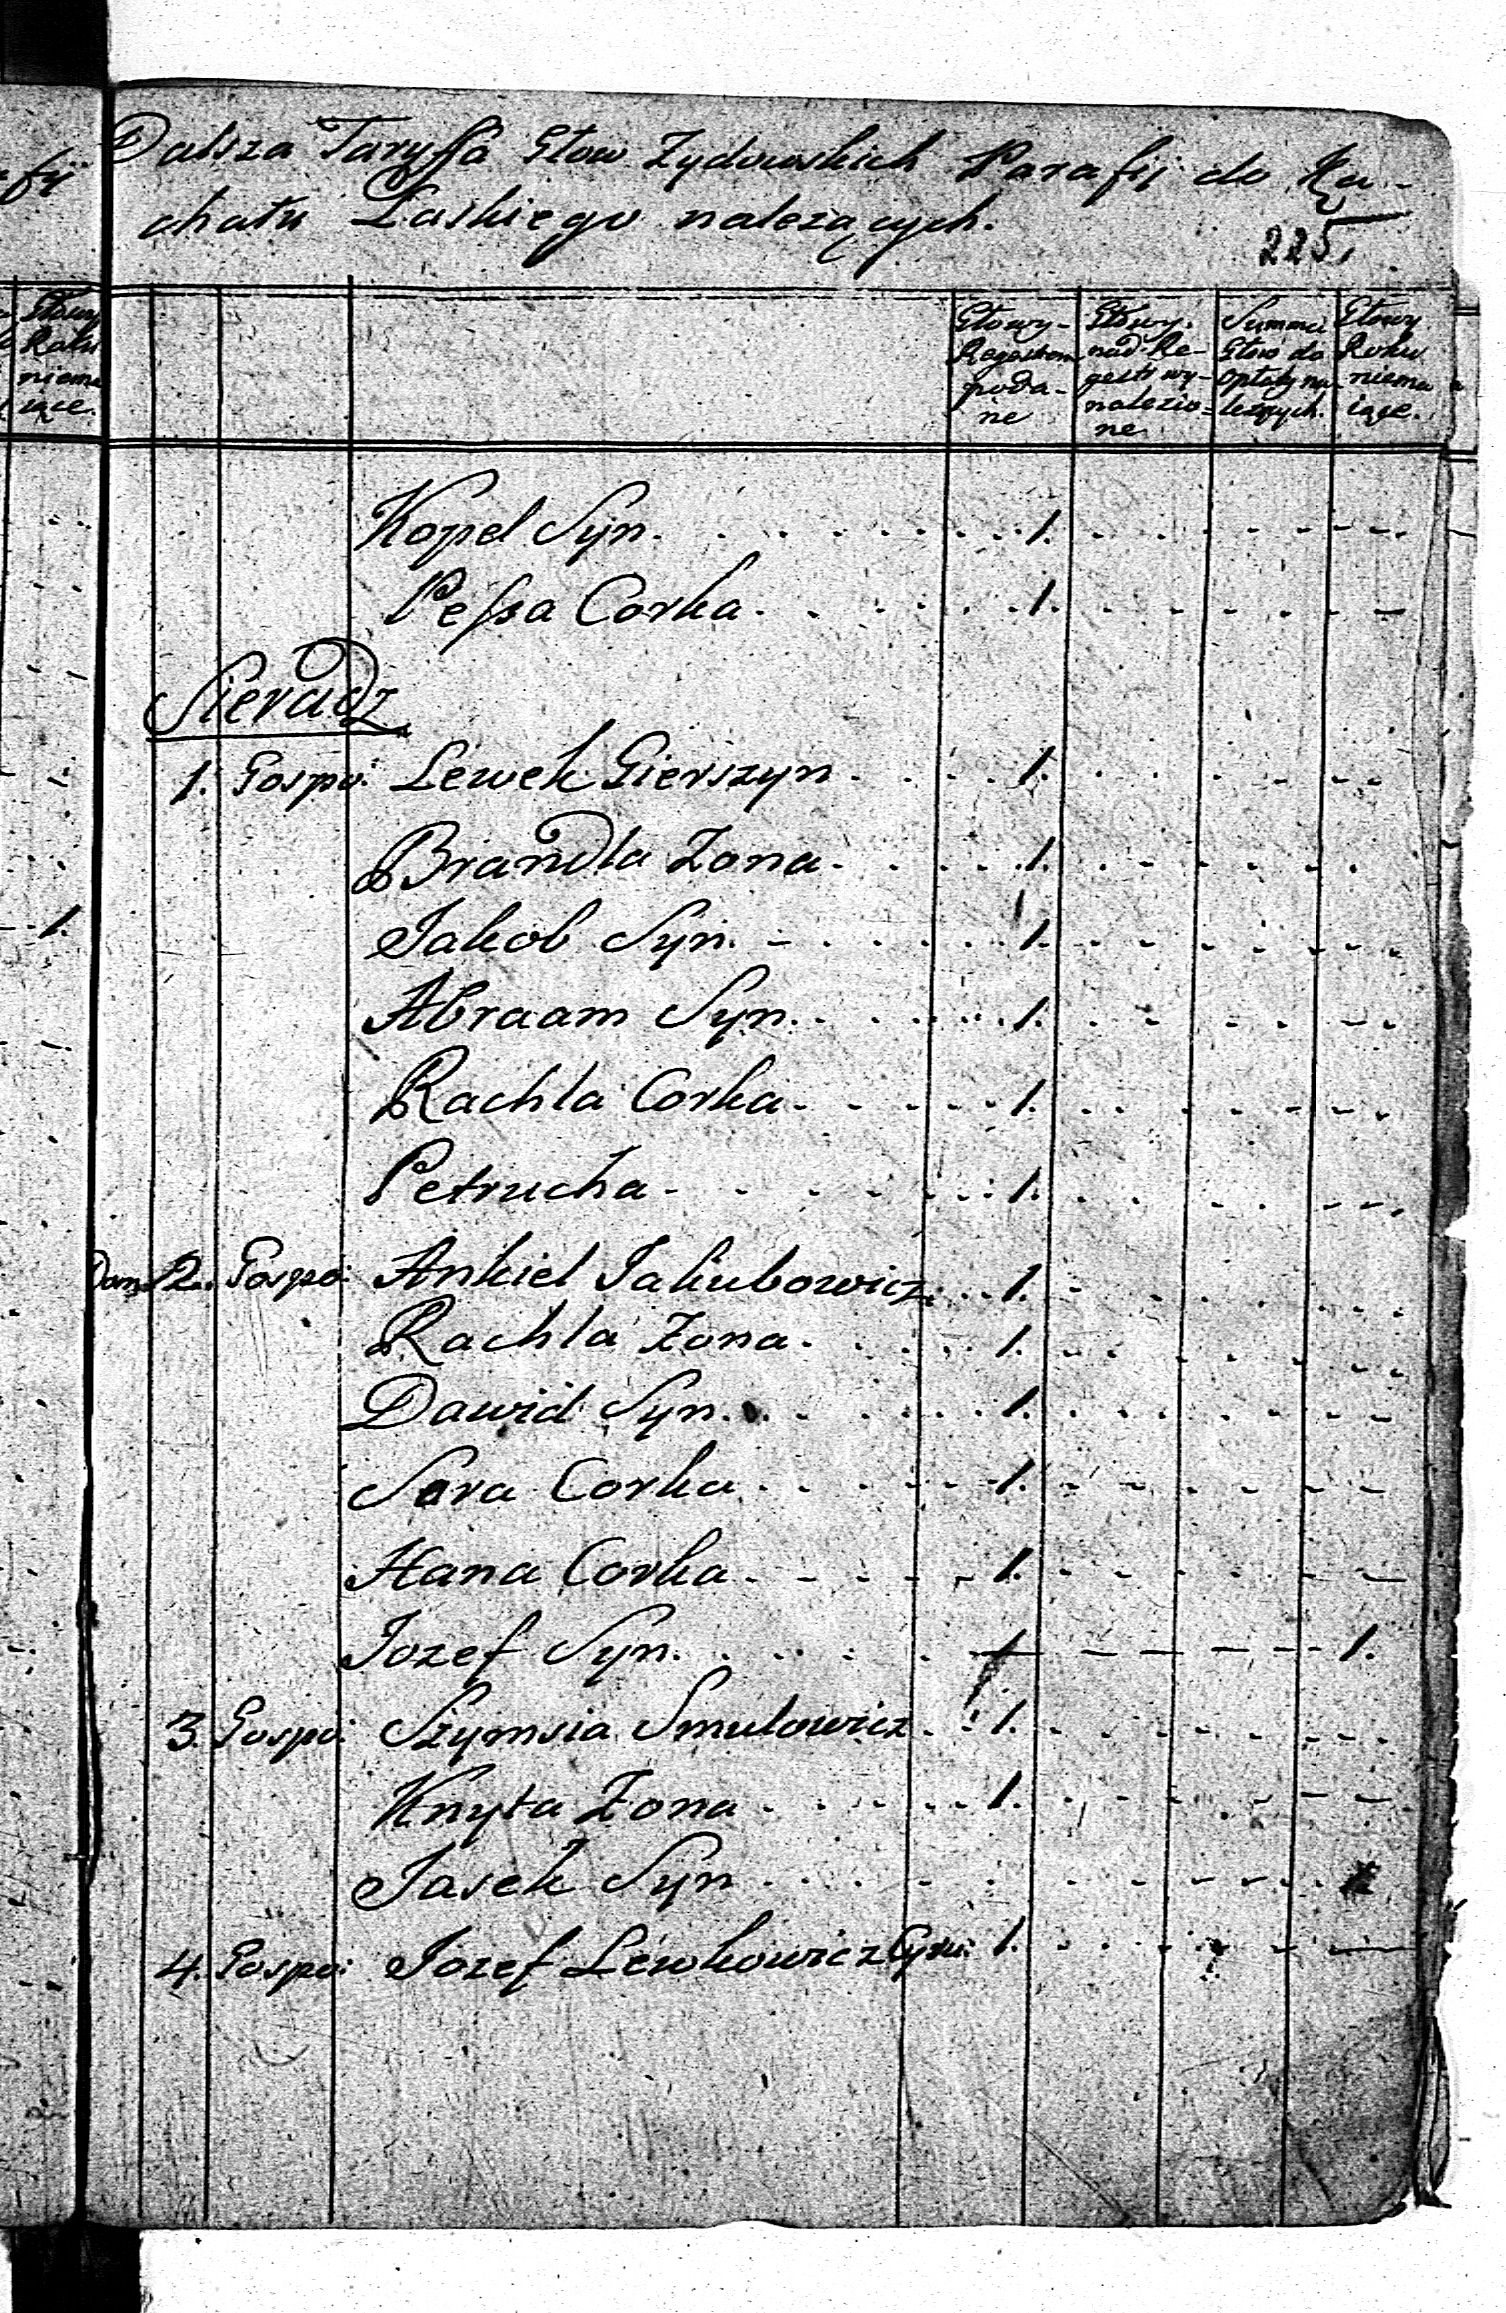 Dalsza Taryffa Głow Zydowskich Parafij do Ka-
chału Laskiego nalezących.
225.
Głowy Regestrem podane
Głowy nad Regestr wynalezione
Summa Głow do opłaty nalezących.
Głowy Roku niemaiące.
Kopel Syn. 1.
Pessa Corka 1.
Sieradz
1. Gospo: Lewek Gierszyn 1.
Brandla Zona 1.
Jakob Syn. 1.
Abraam Syn. 1.
Rachla Corka 1.
Petrucha 1.
Dom 2. Gospo: Ankiel Jakubowicz 1.
Rachla Zona 1.
Dawid Syn. 1.
Sara Corka 1.
Hana Corka 1.
Jozef Syn. 1.
3. Gospo: Szymsia Smulowicz 1.
Knyta Zona 1.
Jasek Syn
4. Gospo: Jozef Lewkowicz Cyru: 1.